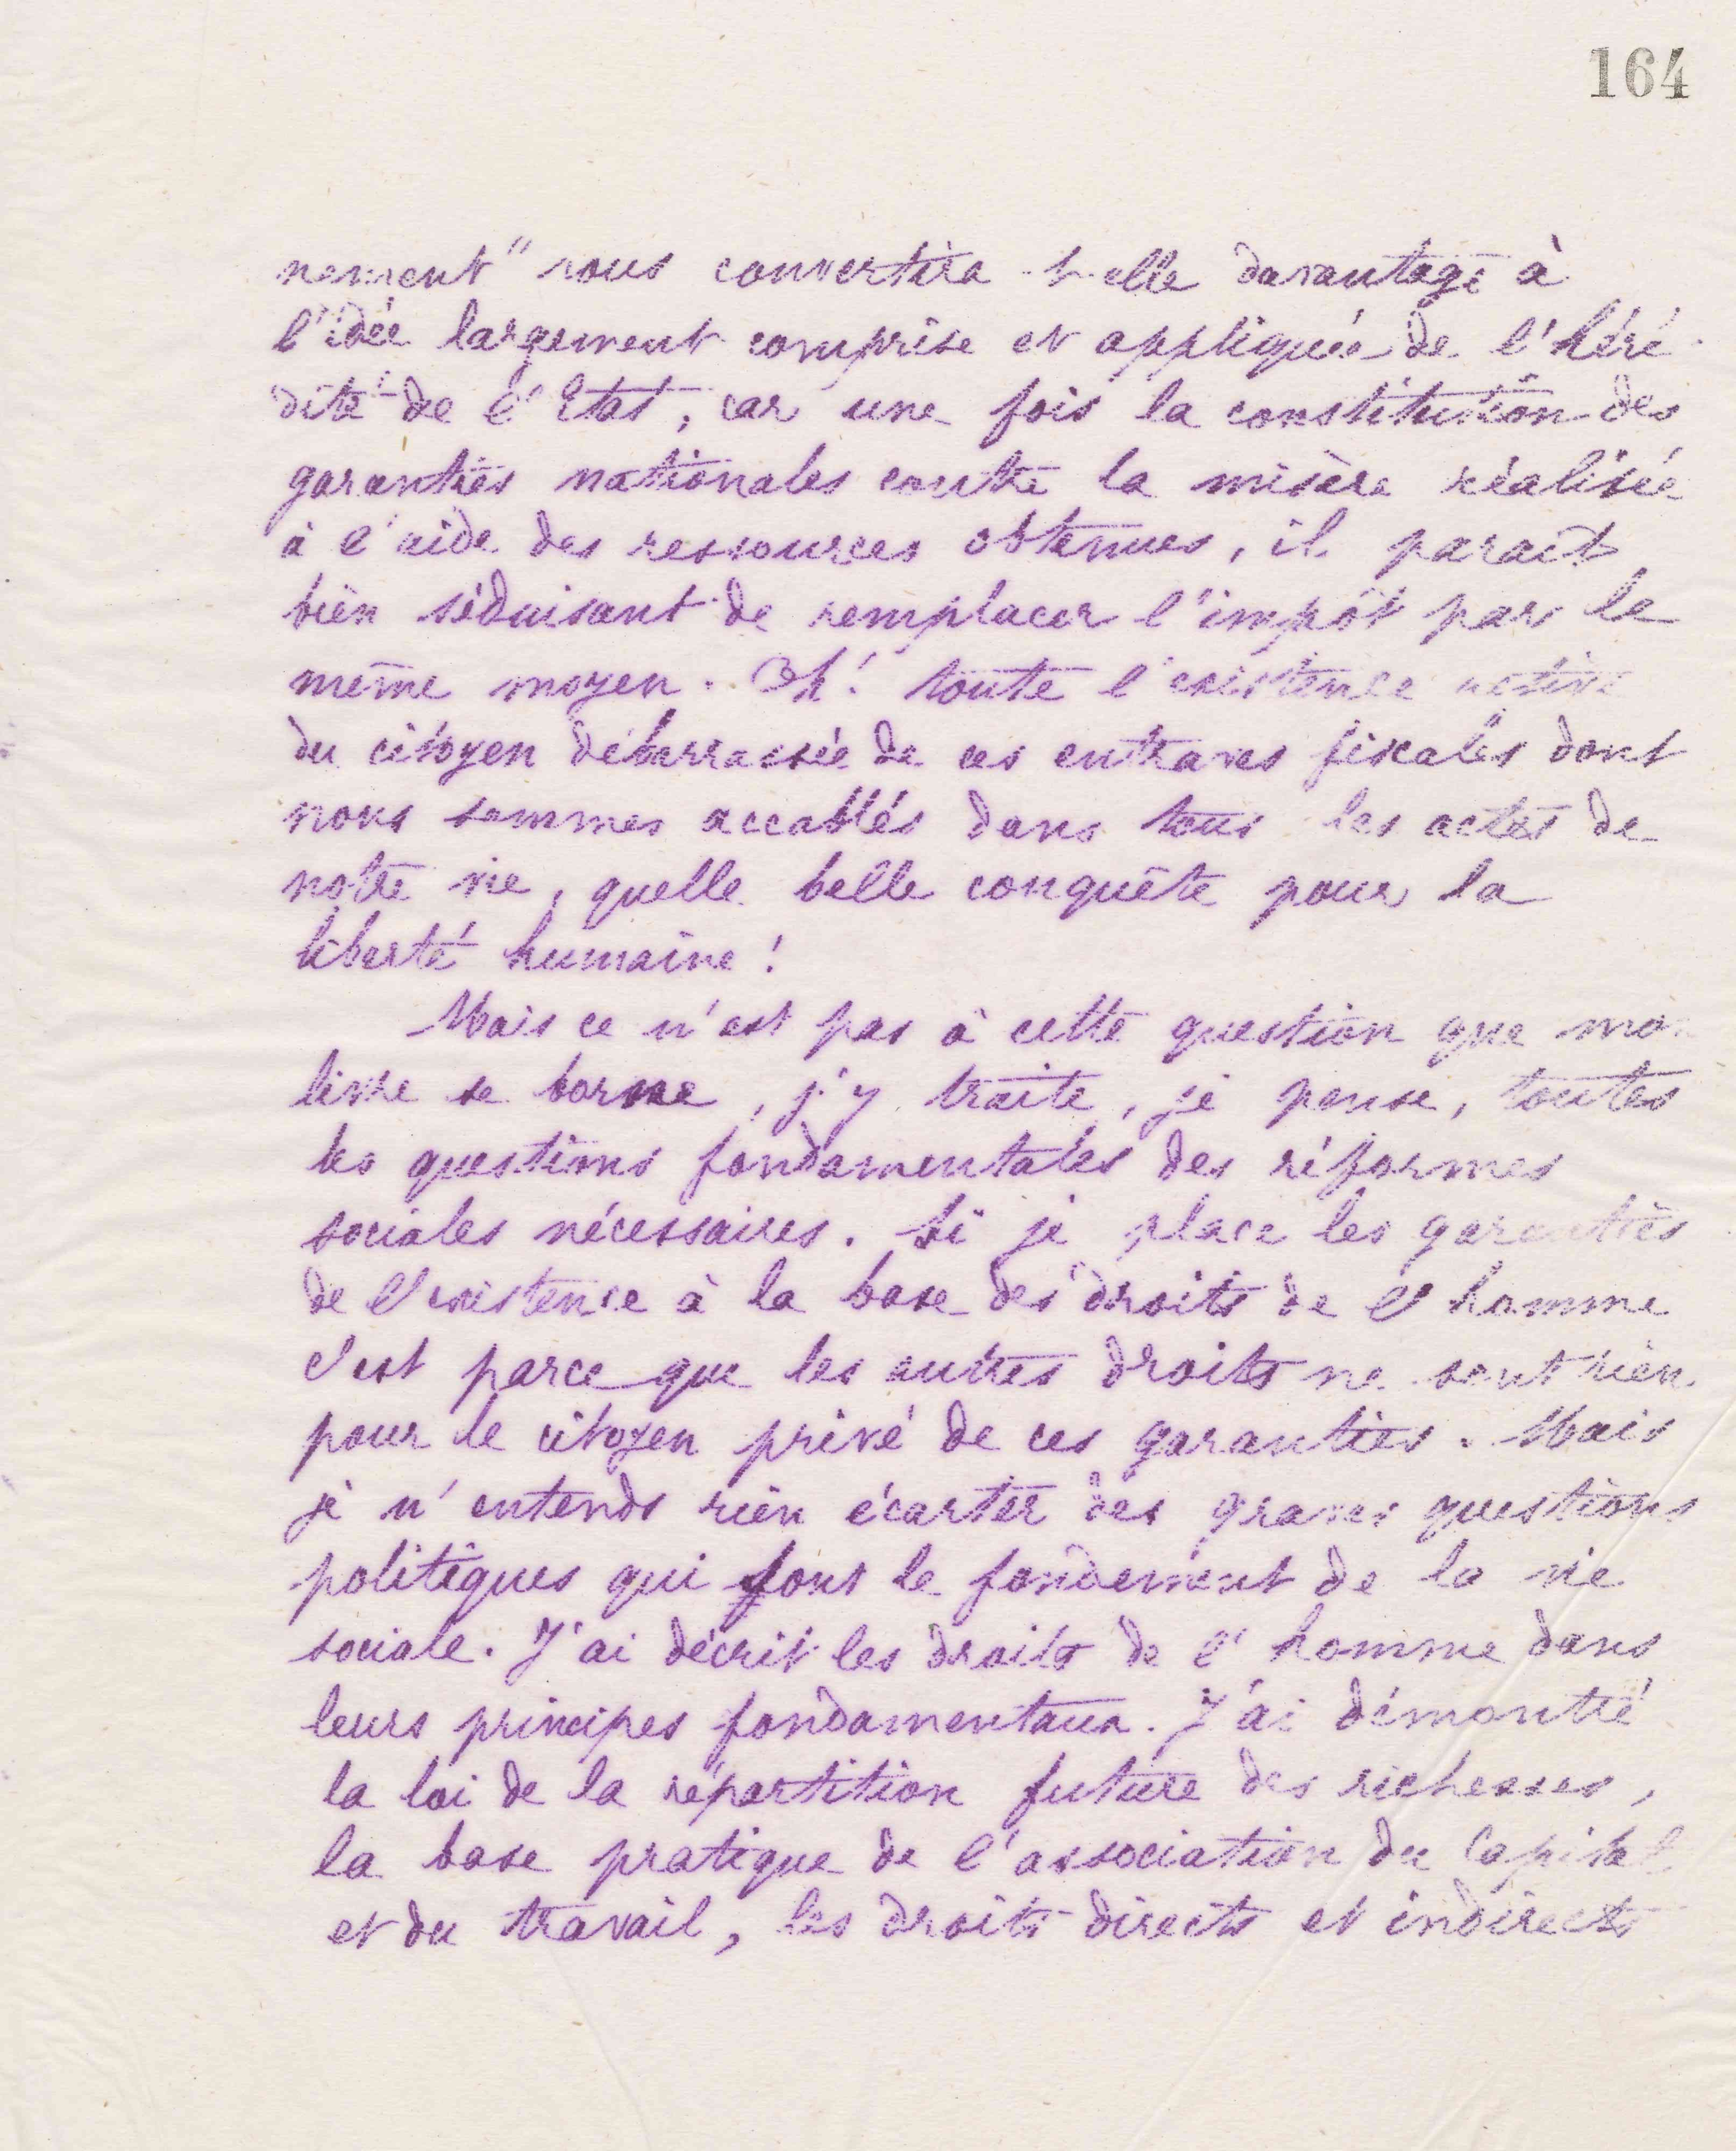 164
nement" vous convertira-t-elle davantage à
l'idée largement comprise et appliquée de l'héré-
dité de l'Etat, car une fois la constitution des
garanties nationales contre la misère réalisée
à l'aide des ressources obtenues, il paraît
bien séduisant de remplacer l'impôt par le
même moyen. Oh! toute l'existence active
du citoyen débarrassée de ces entraves fiscales dont
nous sommes accablés dans tous les actes de
notre vie, quelle belle conquête pour la
liberté humaine!
Mais ce n'est pas à cette question que mon
livre se borne, j'y traite, je pense, toutes
les questions fondamentales des réformes
sociales nécessaires. Si je place les garanties
de l'existence à la base des droits de l'homme
c'est parce que les autres droits ne sont rien
pour le citoyen privé de ces garanties. Mais
je n'entends rien écarter des graves questions
politiques qui font le fondement de la vie
sociale. J'ai décrit les droits de l'homme dans
leurs principes fondamentaux. J'ai démontré
la loi de la répartition future des richesses,
la base pratique de l'association du Capital
et du travail, les droits directs et indirects